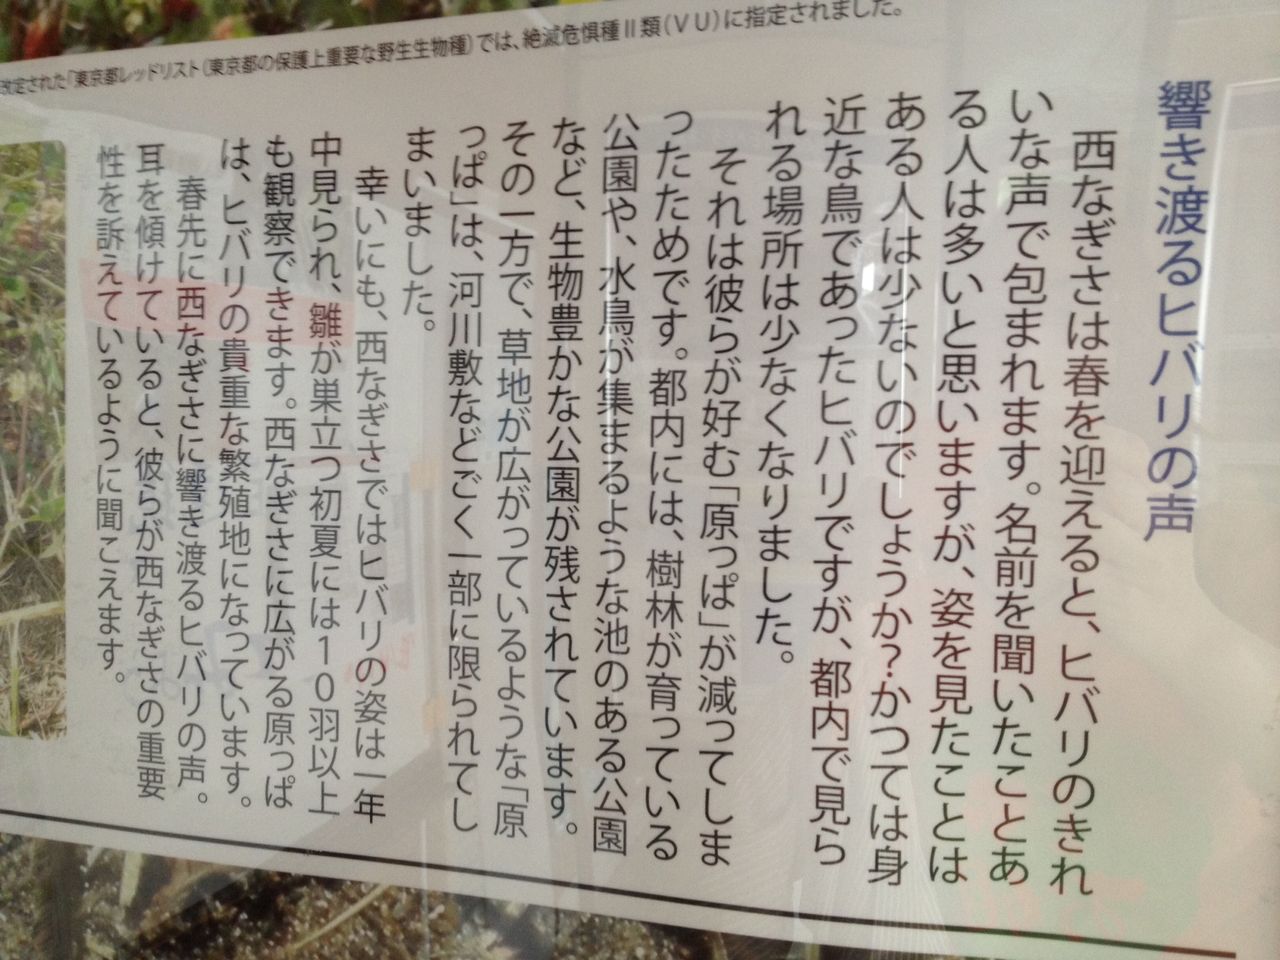 改定された「東京都レッドリスト（東京都の保護上重要な野生生物種）では、絶滅危惧種Ⅱ類（ＶＵ）に指定されました。
響き渡るヒバリの声
西なぎさは春を迎えると、ヒバリのきれ
いな声で包まれます。名前を聞いたことあ
る人は多いと思いますが、姿を見たことは
ある人は少ないのでしょうか？かつては身
近な鳥であったヒバリですが、都内で見ら
れる場所は少なくなりました。
それは彼らが好む「原っぱ」が減ってしま
ったためです。都内には、樹林が育っている
公園や、水鳥が集まるような池のある公園
など、生物豊かな公園が残されています。
その一方で、草地が広がっているような「原
っぱ」は、河川敷などごく一部に限られてし
まいました。
幸いにも、西なぎさではヒバリの姿は一年
中見られ、雛が巣立つ初夏には１０羽以上
も観察できます。西なぎさに広がる原っぱ
は、ヒバリの貴重な繁殖地になっています。
春先に西なぎさに響き渡るヒバリの声。
耳を傾けていると、彼らが西なぎさの重要
性を訴えているように聞こえます。